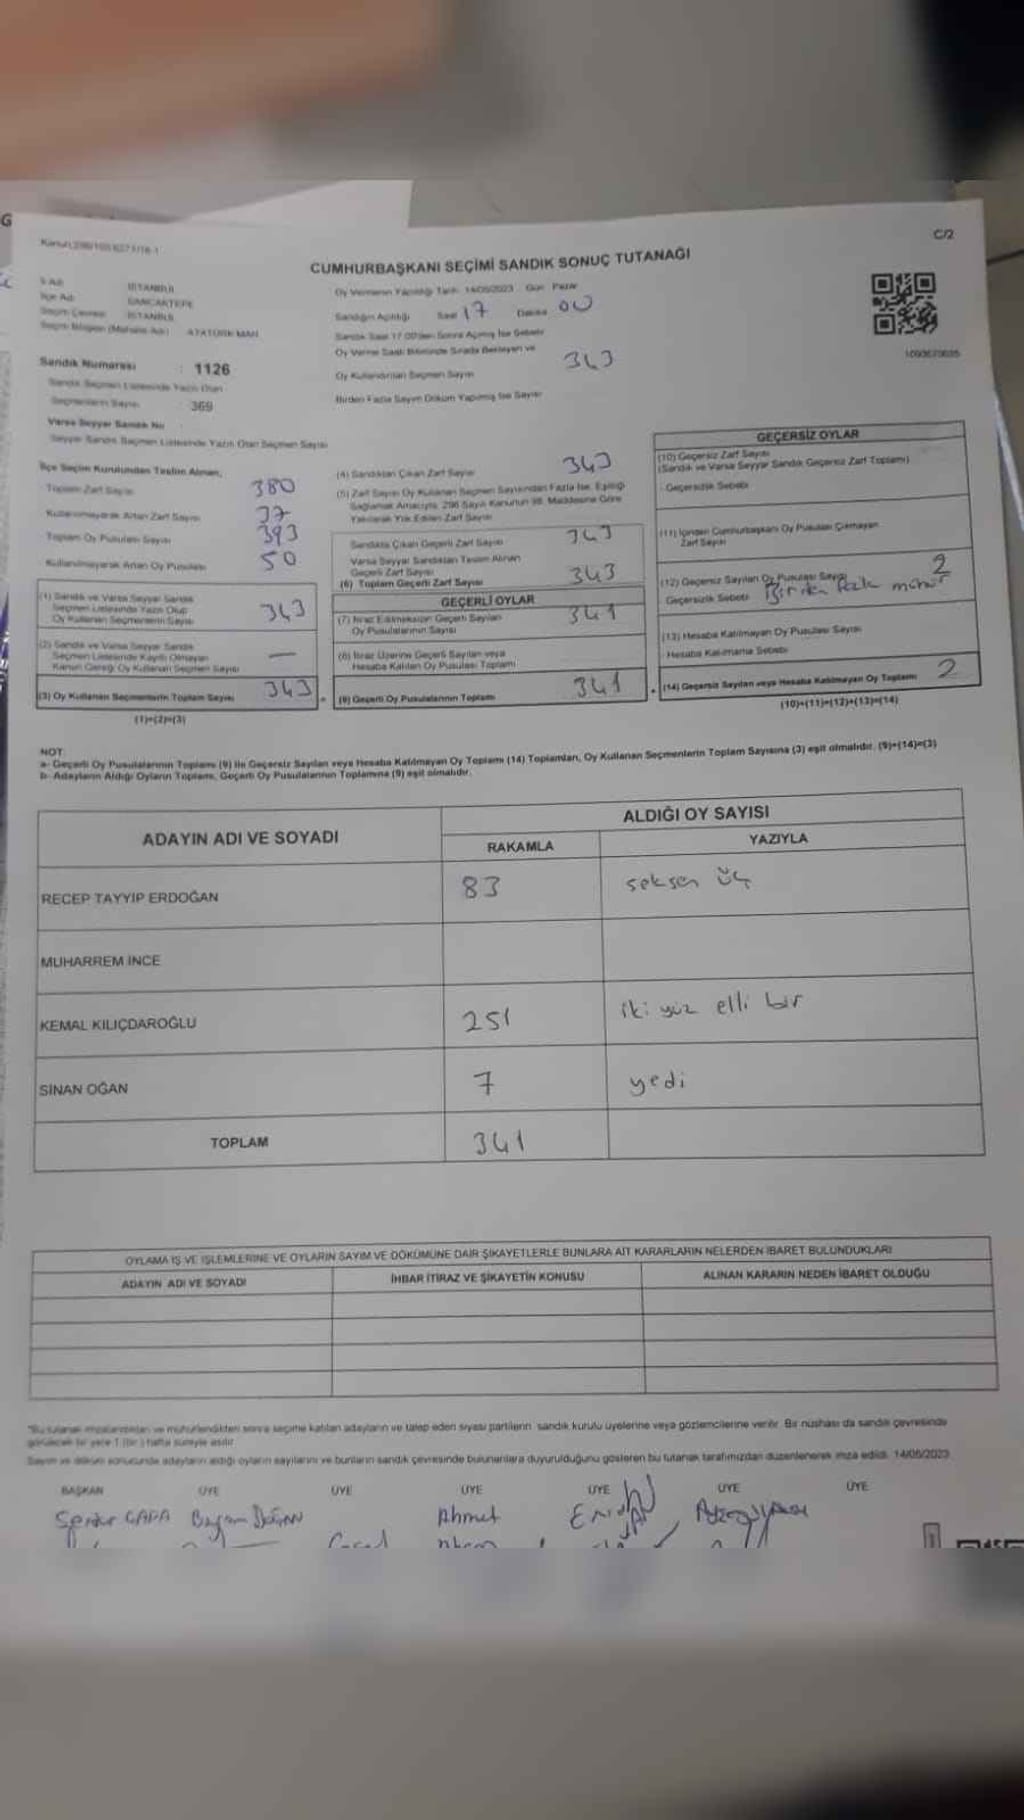 C/2
CUMHURBAŞKANI SEÇİMİ SANDIK SONUÇ TUTANAĞI
İl Adı İSTANBUL
İlçe Adı SANCAKTEPE
Seçim Çevresi İSTANBUL
Seçim Bölgesi (Mahalle Adı) ATATÜRK MAH.
Oy Vermenin Yapıldığı Tarih: 14/05/2023 Gün: Pazar
Sandığın Açıldığı Saat 17 Dakika 00
Sandık Saat 17.00'den Sonra Açılmış İse Sebebi
Oy Verme Saati Bitiminde Sırada Bekleyen ve
Oy Kullandırılan Seçmen Sayısı 343
Birden Fazla Sayım Döküm Yapılmış İse Sayısı
Sandık Numarası : 1126
Sandık Seçmen Listesinde Yazılı Olan
Seçmenlerin Sayısı : 369
Varsa Seyyar Sandık No
Seyyar Sandık Seçmen Listesinde Yazılı Olan Seçmen Sayısı
İlçe Seçim Kurulundan Teslim Alınan,
Toplam Zarf Sayısı 380
Kullanılmayarak Artan Zarf Sayısı 37
Toplam Oy Pusulası Sayısı 393
Kullanılmayarak Artan Oy Pusulası 50
(1) Sandık ve Varsa Seyyar Sandık
Seçmen Listesinde Yazılı Olup
Oy Kullanan Seçmenlerin Sayısı 343
(2) Sandık ve Varsa Seyyar Sandık
Seçmen Listesinde Kayıtlı Olmayan
Kanun Gereği Oy Kullanan Seçmen Sayısı —
(3) Oy Kullanan Seçmenlerin Toplam Sayısı 343
(1)+(2)=(3)
(4) Sandıktan Çıkan Zarf Sayısı 343
(5) Zarf Sayısı Oy Kullanan Seçmen Sayısından Fazla İse, Eşitliği
Sağlamak Amacıyla, 298 Sayılı Kanunun 98. Maddesine Göre
Yakılarak Yok Edilen Zarf Sayısı
Sandıkta Çıkan Geçerli Zarf Sayısı 343
Varsa Seyyar Sandıktan Teslim Alınan
Geçerli Zarf Sayısı
(6) Toplam Geçerli Zarf Sayısı 343
GEÇERLİ OYLAR
(7) İtiraz Edilmeksizin Geçerli Sayılan
Oy Pusulalarının Sayısı 341
(8) İtiraz Üzerine Geçerli Sayılan veya
Hesaba Katılan Oy Pusulası Toplamı
(9) Geçerli Oy Pusulalarının Toplamı 341
GEÇERSİZ OYLAR
(10) Geçersiz Zarf Sayısı
(Sandık ve Varsa Seyyar Sandık Geçersiz Zarf Toplamı)
Geçersizlik Sebebi
(11) İçinden Cumhurbaşkanı Oy Pusulası Çıkmayan
Zarf Sayısı
(12) Geçersiz Sayılan Oy Pusulası Sayısı 2
Geçersizlik Sebebi Birden fazla mühür
(13) Hesaba Katılmayan Oy Pusulası Sayısı
Hesaba Katılmama Sebebi
(14) Geçersiz Sayılan veya Hesaba Katılmayan Oy Toplamı 2
(10)+(11)+(12)+(13)=(14)
NOT:
a- Geçerli Oy Pusulalarının Toplamı (9) ile Geçersiz Sayılan veya Hesaba Katılmayan Oy Toplamı (14) Toplamları, Oy Kullanan Seçmenlerin Toplam Sayısına (3) eşit olmalıdır. (9)+(14)=(3)
b- Adayların Aldığı Oyların Toplamı, Geçerli Oy Pusulalarının Toplamına (9) eşit olmalıdır.
ADAYIN ADI VE SOYADI
ALDIĞI OY SAYISI
RAKAMLA YAZIYLA
RECEP TAYYİP ERDOĞAN 83 seksen üç
MUHARREM İNCE
KEMAL KILIÇDAROĞLU 251 iki yüz elli bir
SİNAN OĞAN 7 yedi
TOPLAM 341
OYLAMA İŞ VE İŞLEMLERİNE VE OYLARIN SAYIM VE DÖKÜMÜNE DAİR ŞİKAYETLERLE BUNLARA AİT KARARLARIN NELERDEN İBARET BULUNDUKLARI
ADAYIN ADI VE SOYADI İHBAR İTİRAZ VE ŞİKAYETİN KONUSU ALINAN KARARIN NEDEN İBARET OLDUĞU
*Bu tutanak imzalandıktan ve mühürlendikten sonra seçime katılan adayların ve talep eden siyasi partilerin sandık kurulu üyelerine veya gözlemcilerine verilir. Bir nüshası da sandık çevresinde
görülecek bir yere 1 (bir) hafta süreyle asılır.
Sayım ve döküm sonucunda adayların aldığı oyların sayılarını ve bunların sandık çevresinde bulunanlara duyurulduğunu gösteren bu tutanak tarafımızdan düzenlenerek imza edildi. 14/05/2023
BAŞKAN ÜYE ÜYE ÜYE ÜYE ÜYE ÜYE
Ahmet